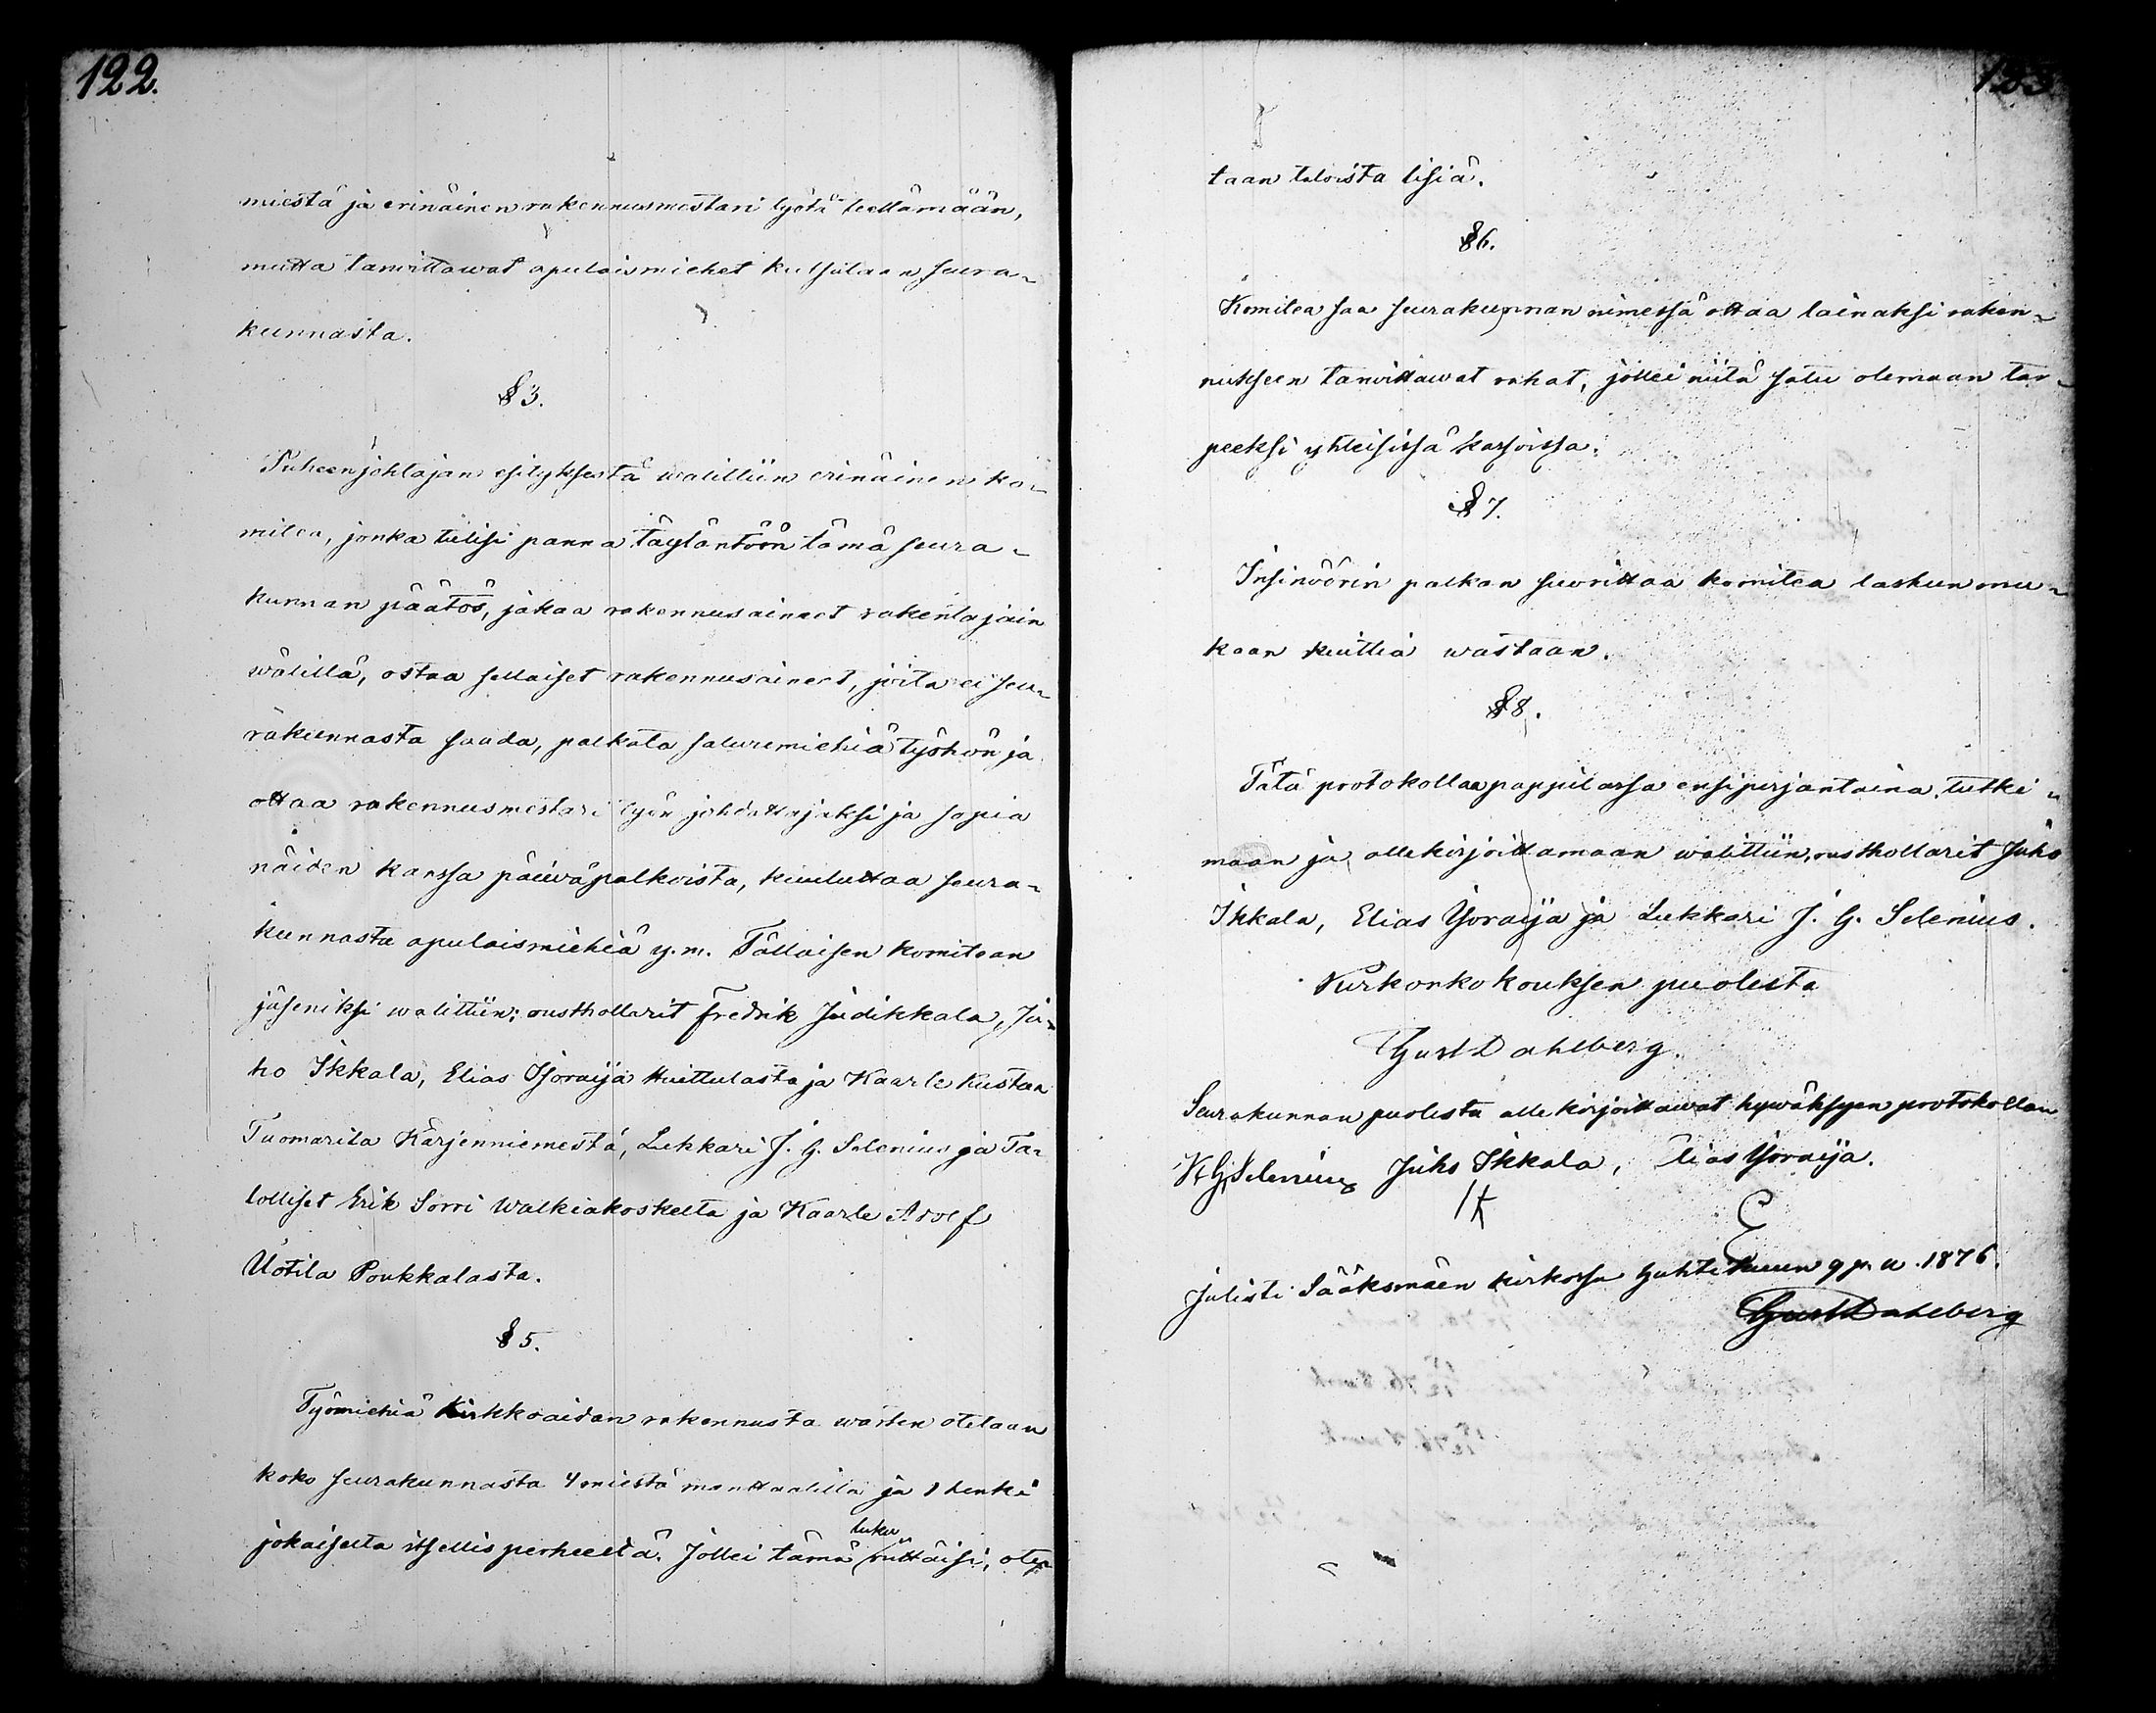 122.
miestä ja erinäinen rakennusmestari työtä teettämään,
mutta tarvittawat apulaismiehet kutsutaan seura-
kunnasta.
§ 3.
Puheenjohtajan esityksestä walittiin erinäinen ko-
mitea, jonka tulisi panna täytäntöön tämä seura-
kunnan päätös, jakaa rakennusaineet rakentajain
wälillä, ostaa sellaiset rakennusaineet, joita ei seu-
rakunnasta saada, palkata salwumiehiä työhön ja
ottaa rakennusmestari työn johdattajaksi ja sopia
näiden kanssa päiwäpalkoista, kuuluttaa seura-
kunnasta apulaismiehiä y.m. Tällaisen komitean
jäseniksi walittiin: rusthollarit Fredrik Judikkala, Ju-
ho Ikkala, Elias Yoraija Huittulasta ja Kaarle Kustaa
Tuomarila Kärjenniemestä, Lukkari J. G. Selenius ja Ta-
lolliset Erik Sorri Walkiakoskelta ja Kaarle Adolf
Uotila Poukkalasta.
§ 5.
Työmiehiä kirkkoaidan rakennusta warten otetaan
koko seurakunnasta 4 miestä manttaalilla ja 1 henki
luku
jokaiselta itsellisperheeltä. Jollei tämä riittäisi, ote-
123.
taan taloista lisiä.
§ 6.
Komitea saa seurakunnan nimessä ottaa lainaksi raken-
nukseen tarvittawat rahat, jollei niitä satu olemaan tar-
peeksi yhteisissä kassoissa.
§ 7.
Insinöörin palkan suorittaa komitea laskun mu-
kaan kuittia wastaan.
§ 8.
Tätä protokollaa pappilassa ensi perjantaina tutki-
maan ja allekirjoittamaan walittiin, rusthollarit Juho
Ikkala, Elias Yoraija ja Lukkari J. G. Selenius.
Kirkonkokouksen puolesta
Gust Dahlberg.
Seurakunnan puolesta allekirjoittawat hywäksyen protokollan
K G Selenius Juho Ikkala, Elias Yoraija.
E
Julisti Sääksmäen kirkossa Huhtikuun 9 p. w. 1876.
Gust Dahlberg